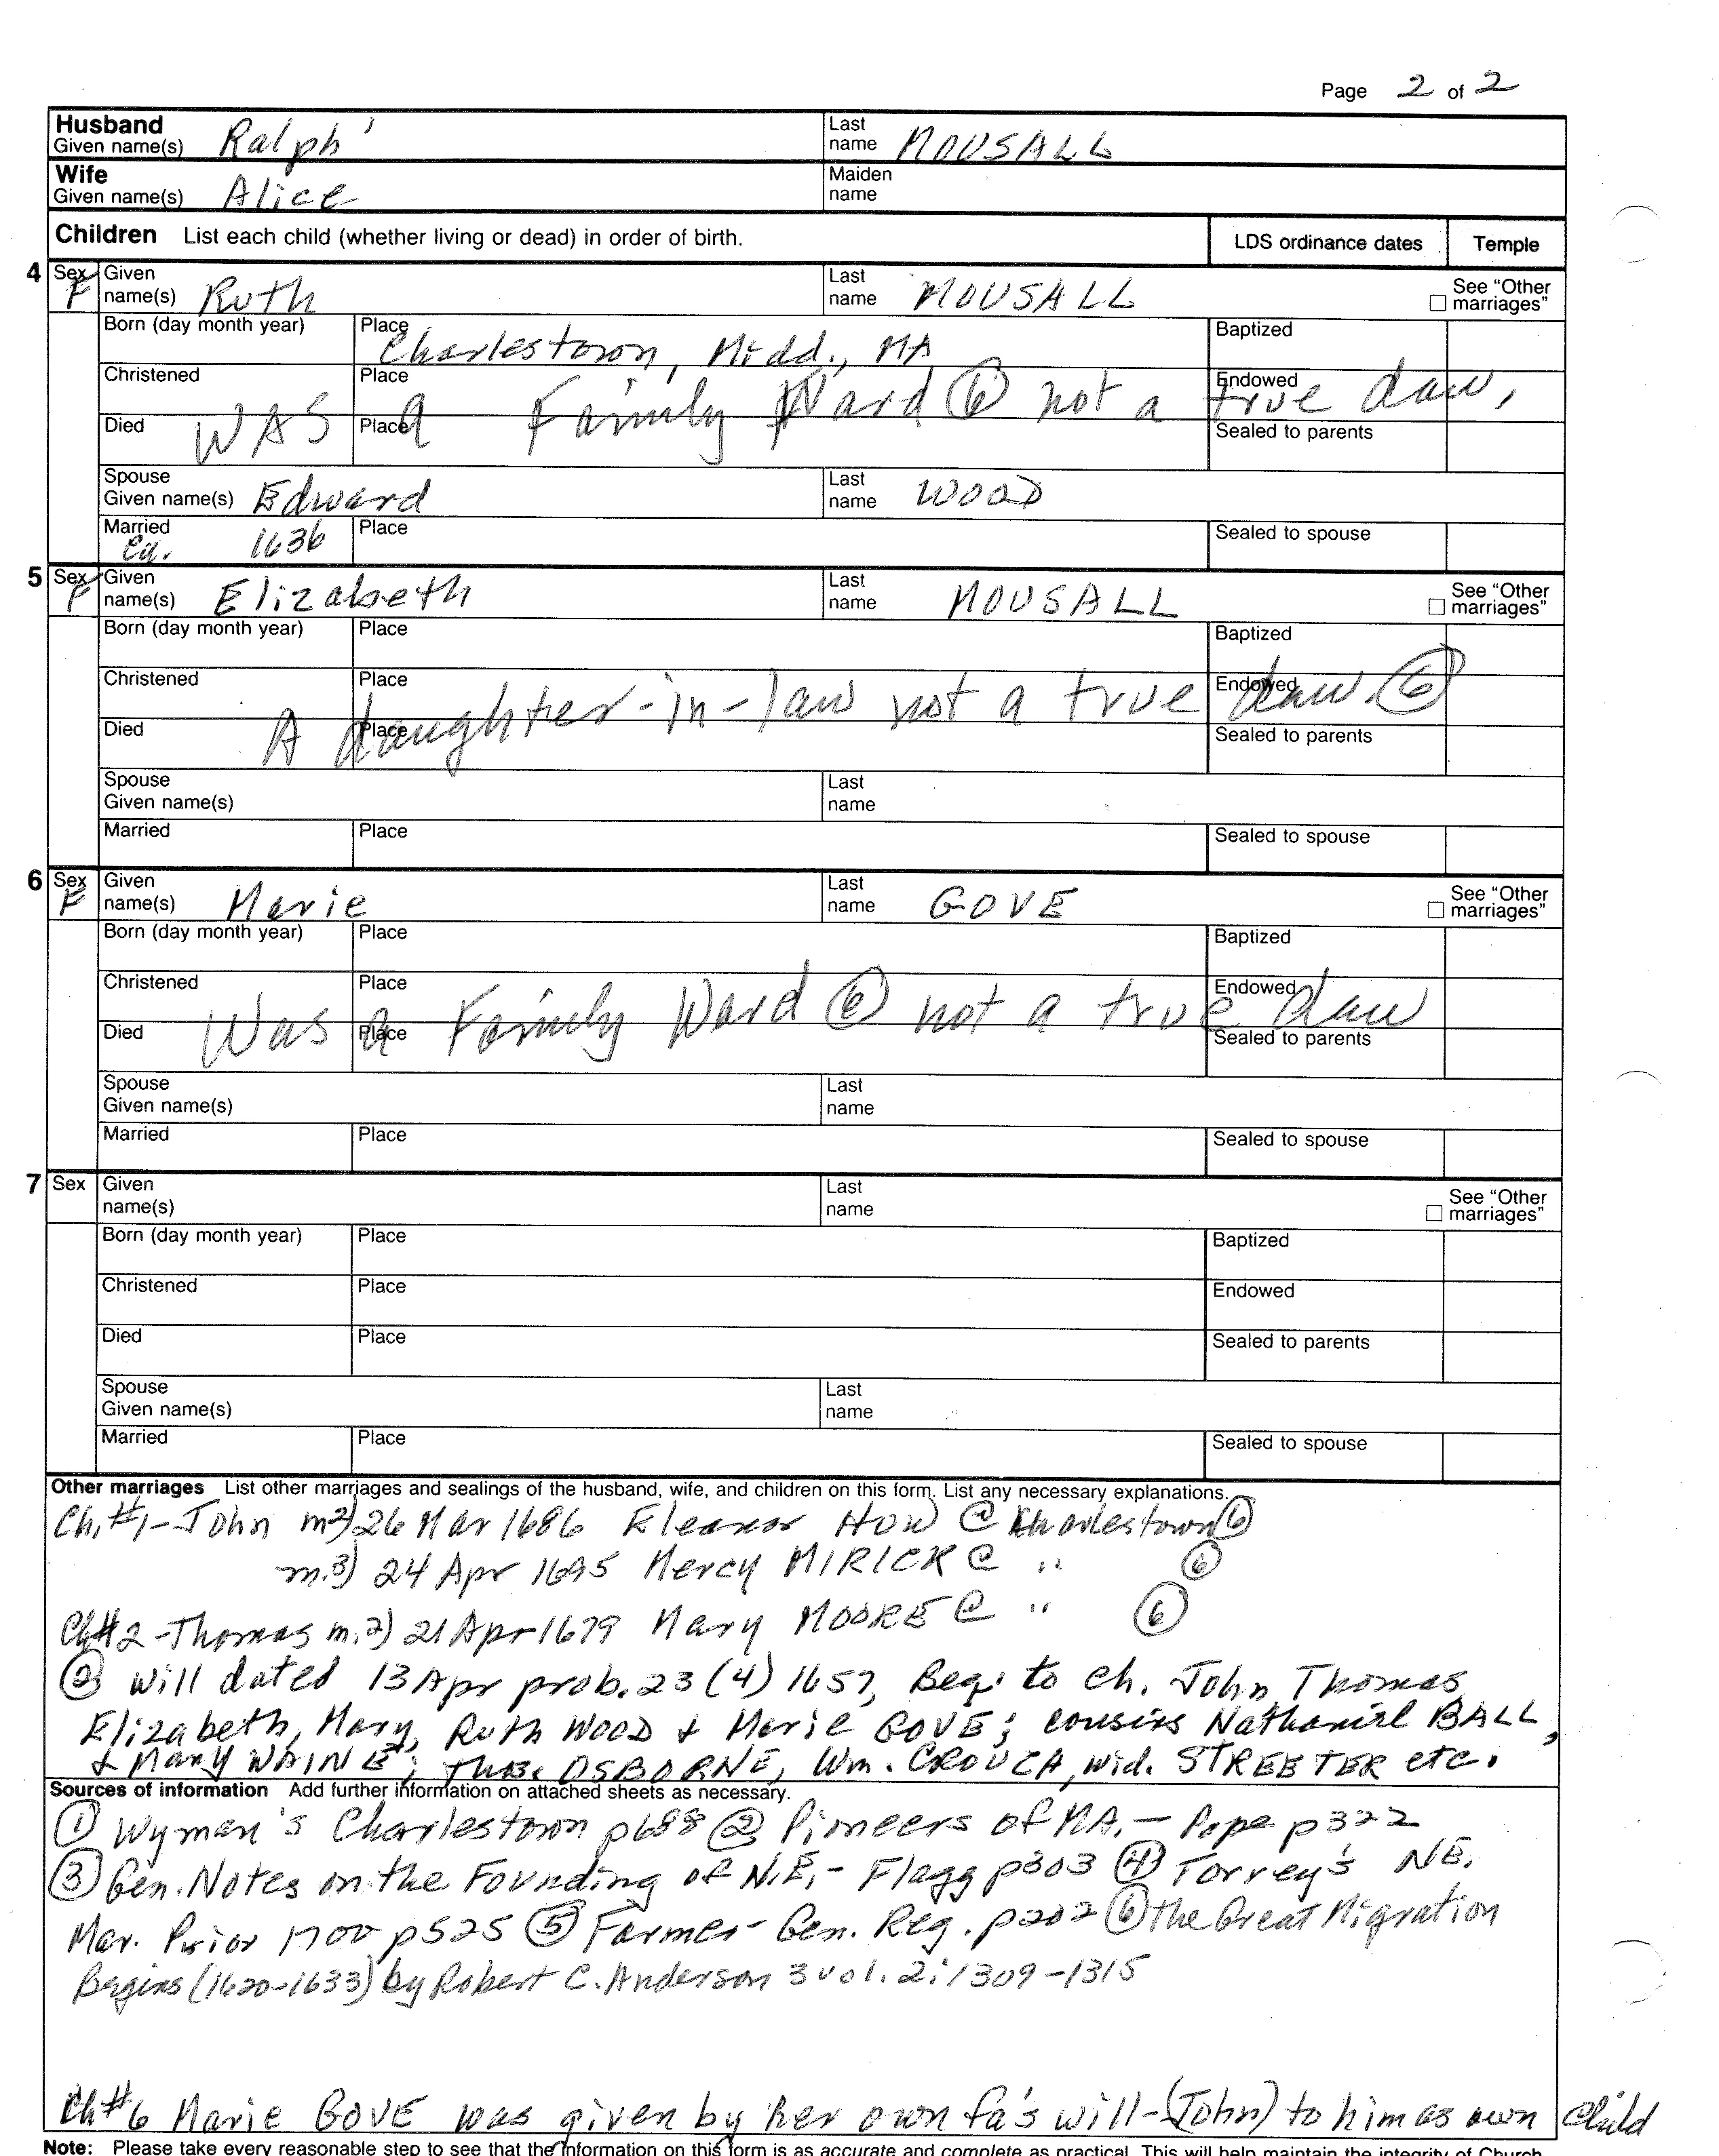 Page 2 of 2
Husband Given name(s) Ralph' Last name MOUSALL
Wife Given name(s) Alice Maiden name
Children List each child (whether living or dead) in order of birth. LDS ordinance dates Temple
4 Sex F Given name(s) Ruth Last name MOUSALL See "Other marriages"
Born (day month year) Place Charlestown, Midd., MA Baptized
Christened Place Endowed
WAS a Family Ward ⑥ not a true dau,
Died Place Sealed to parents
Spouse Given name(s) Edward Last name WOOD
Married Ca. 1636 Place Sealed to spouse
5 Sex F Given name(s) Elizabeth Last name MOUSALL See "Other marriages"
Born (day month year) Place Baptized
Christened Place Endowed
A daughter-in-law not a true dau. ⑥
Died Place Sealed to parents
Spouse Given name(s) Last name
Married Place Sealed to spouse
6 Sex F Given name(s) Marie Last name GOVE See "Other marriages"
Born (day month year) Place Baptized
Christened Place Endowed
Was a Family Ward ⑥ not a true dau
Died Place Sealed to parents
Spouse Given name(s) Last name
Married Place Sealed to spouse
7 Sex Given name(s) Last name See "Other marriages"
Born (day month year) Place Baptized
Christened Place Endowed
Died Place Sealed to parents
Spouse Given name(s) Last name
Married Place Sealed to spouse
Other marriages List other marriages and sealings of the husband, wife, and children on this form. List any necessary explanations.
Ch, #1 - John m2) 26 Mar 1686 Eleanor HOW @ Charlestown ⑥
m.3) 24 Apr 1695 Mercy MIRICK @ " ⑥
Ch#2 - Thomas m.2) 21 Apr 1679 Mary MOORE @ " ⑥
② Will dated 13 Apr prob. 23 (4) 1657, Beq. to ch. John Thomas
Elizabeth, Mary, Ruth WOOD & Marie GOVE; cousins Nathaniel BALL,
& Mary WAINE; Thos. OSBORNE, Wm. CROUCH, wid. STREETER etc.
Sources of information Add further information on attached sheets as necessary.
① Wyman's Charlestown p688 ② Pioneers of MA. - Pope p322
③ Gen. Notes on the Founding of N.E, - Flagg p303 ④ Torrey's NE.
Mar. Prior 1700 p525 ⑤ Farmer - Gen. Reg. p202 ⑥ The Great Migration
Begins (1620-1633) by Robert C. Anderson 3 vol. 2:1309-1315
Ch#6 Marie GOVE was given by her own fa's will - (John) to him as own child
Note: Please take every reasonable step to see that the information on this form is as accurate and complete as practical. This will help maintain the integrity of Church